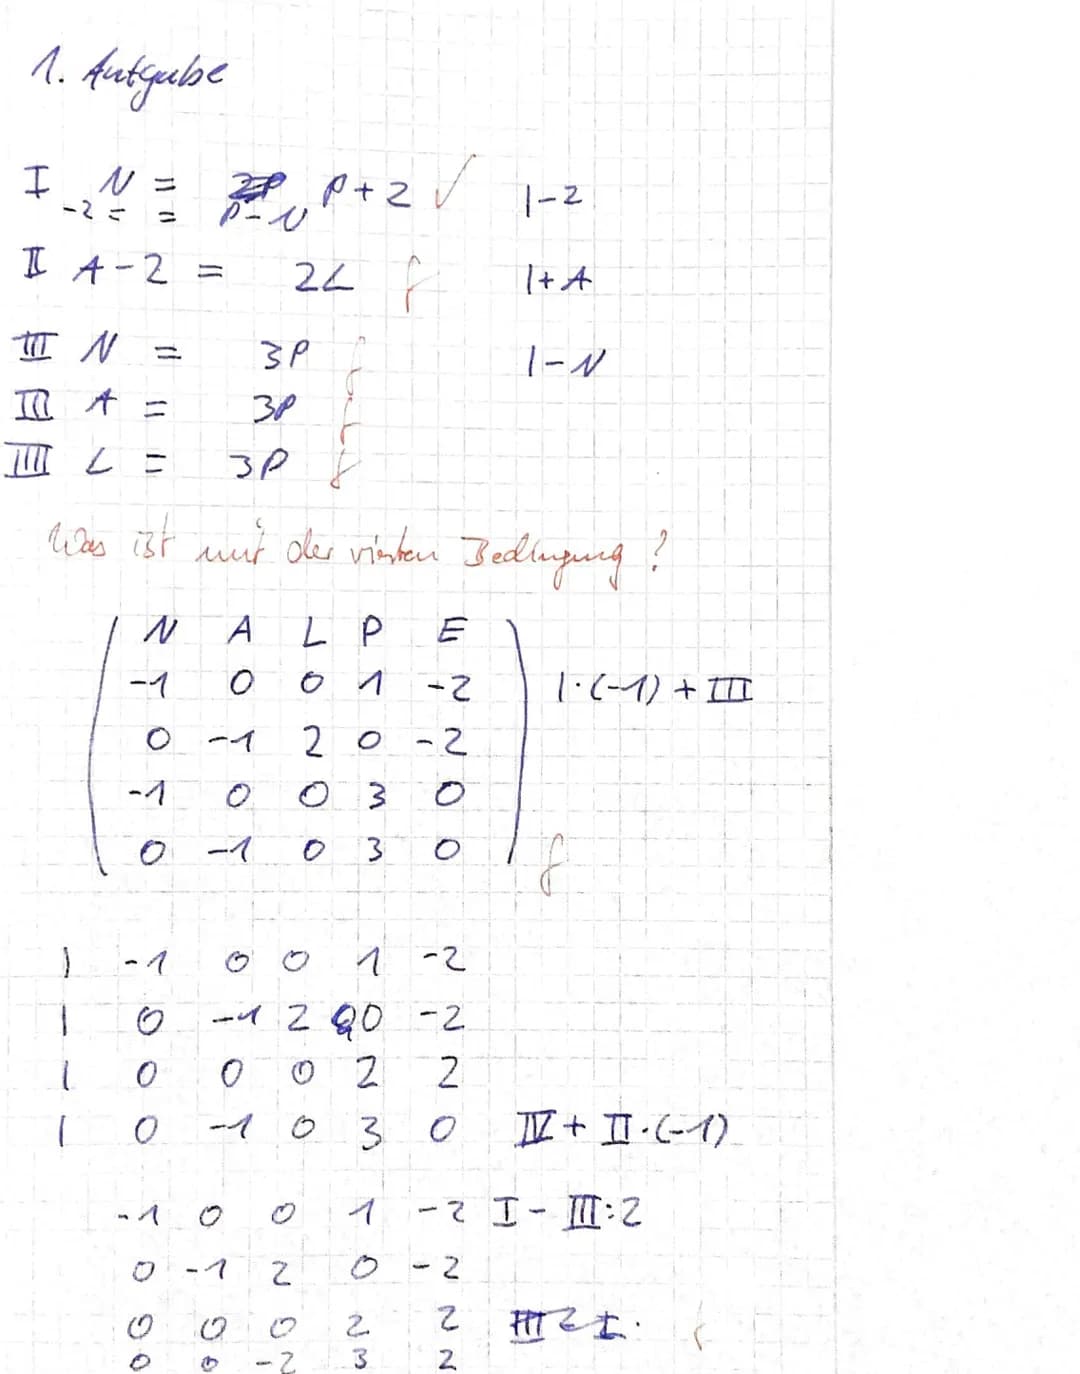 1. Aufgabe
I N = P+2 ✓ |-2
-2 = = P-N
II A-2 = 2L f |+A
III N = 3P f |-N
III A = 3P f
IIII L = 3P f
Was ist mit der vierten Bedingung?
N A L P E
-1 0 0 1 -2 |·(-1) + III
0 -1 2 0 -2
-1 0 0 3 0
0 -1 0 3 0 f
| -1 0 0 1 -2
| 0 -1 2 0 -2
| 0 0 0 2 2
| 0 -1 0 3 0 IV + II·(-1)
-1 0 0 1 -2 I - III:2
0 -1 2 0 -2
0 0 0 2 2
0 0 -2 3 2